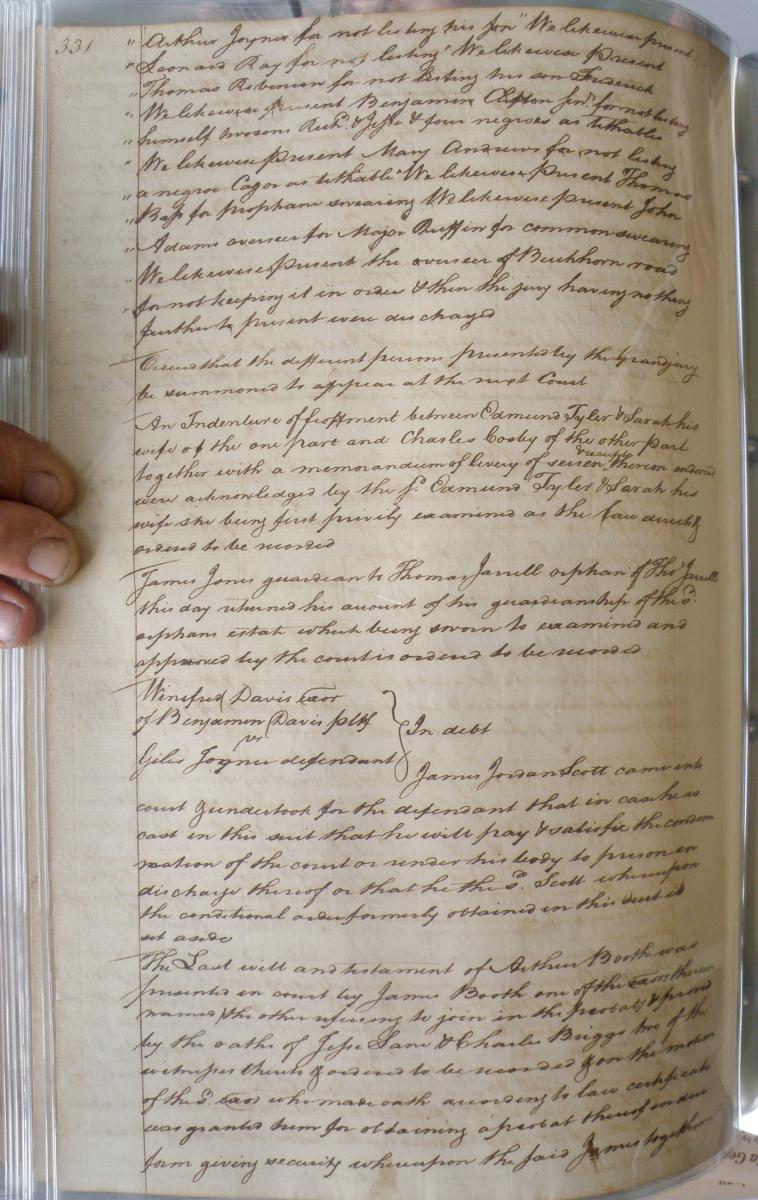 331
" Arthur Joyner for not listing his son" We likewise present
" Leonard Ray for not listing" We likewise present
" Thomas Robinson for not listing his son Frederick
" We likewise present Benjamin Clifton Senr. for not listing
" himself two sons Richd. & Jesse & four negroes as tithables
" We likewise present Mary Andrews for not listing
" a negroe Cager as tithable" We likewise present Thomas
" Bass for prophane swearing We likewise present John
" Adams overseer for Major Ruffin for common swearing
" We likewise present the overseer of Buckhorn road
" for not keeping it in order & then the jury having nothing
further to present were discharged
Ordered that the different persons presented by the Grand jury
be summoned to appear at the next Court
An Indenture of feoffment between Edmund Tyler & Sarah his
wife of the one part and Charles Cosby of the other part
together with a memorandum of livery of seisen & receipt thereon endorsd
were acknowledged by the sd. Edmund Tyler & Sarah his
wife she being first privily examined as the law directs &
ordered to be recorded
James Jones guardian to Thomas Jarrell orphan of Thos. Jarrell
this day returned his acount of his guardianship of the sd.
orphans estate which being sworn to examined and
approved by the court is ordered to be recorded
Winifred Davis Exor
of Benjamin Davis pltf
vs
Giles Joyner defendant
In debt
James Jordan Scott came into
court & undertook for the defendant that in case he is
cast in this suit that he will pay & satisfie the condem
nation of the court or render his body to prison in
discharge thereof or that he the sd. Scott whereupon
the conditional order formerly obtained in this suit is
set aside
The Last will and testament of Arthur Booth was
presented in court by James Booth one of the exors therein
named (the other refusing to join in the probat) & proved
by the oaths of Jesse Lane & Charles Briggs two of the
witnesses thereto & ordered to be recorded & on the motion
of the sd. exor who made oath according to law certificate
was granted him for obtaining a probat thereof in due
form giving security whereupon the said James together